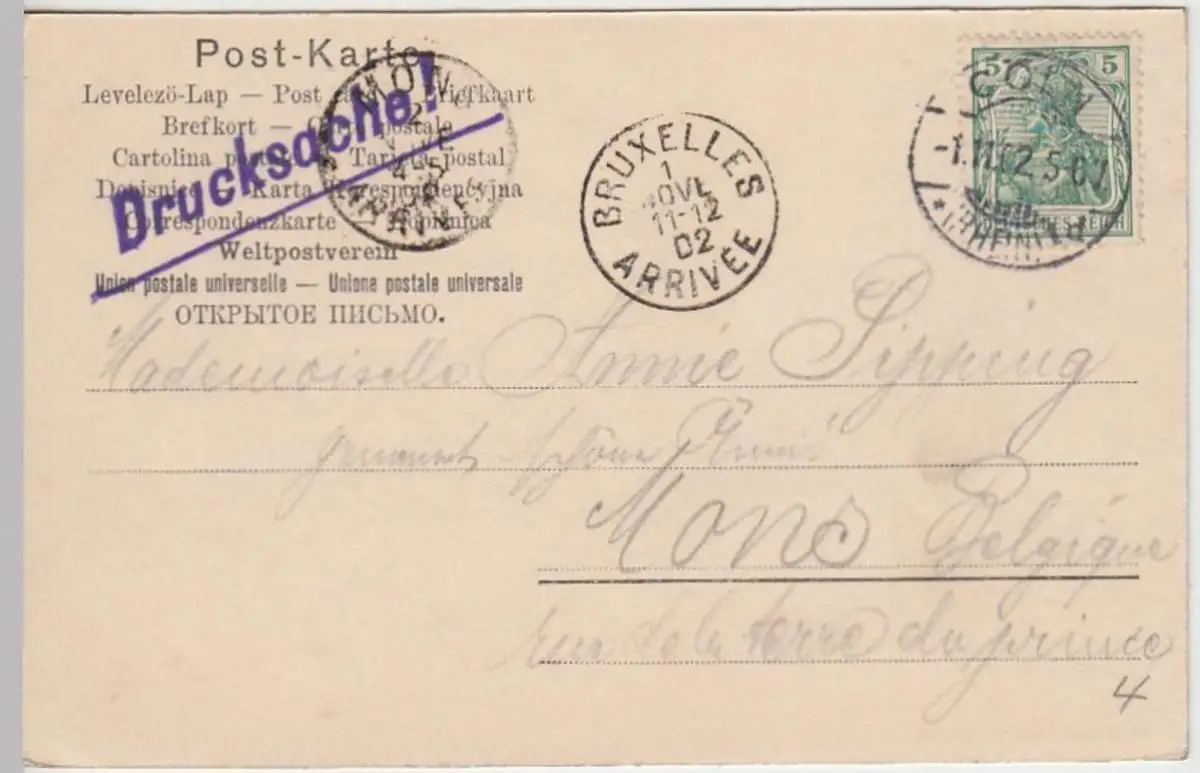 Post-Karte
Levelezö-Lap — Post card — Briefkaart
Brefkort — Carte postale
Cartolina postale — Tarjeta postal
Dopisnice — Karta korespondencyjna
Correspondenzkarte — Dopisnica
Weltpostverein
Union postale universelle — Unione postale universale
ОТКРЫТОЕ ПИСЬМО.
Drucksache!
MONS
2
4-5
BRUXELLES
1
NOVE
11-12
02
ARRIVÉE
5 5
CÖLN
-1.11.02.5-6
(RHEIN)
Mademoiselle Annie Sipping
Mons Belgique
rue de la terre du prince
4